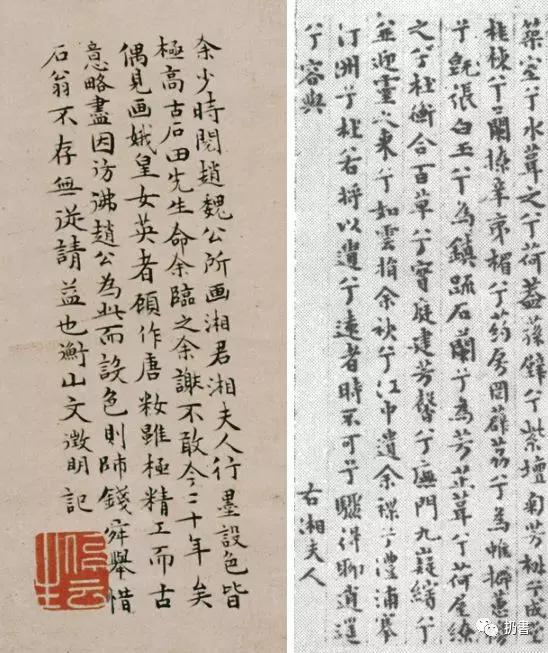 余少時閱趙魏公所画湘君湘夫人行墨設色皆
極高古石田先生命余臨之余謝不敢今二十年矣
偶見画娥皇女英者顧作唐妝雖極精工而古
意略盡因彷彿趙公為此而設色則師錢舜舉惜
石翁不存無從請益也衡山文徵明記
停云生
築室兮水葺之兮荷蓋蓀壁兮紫壇匊芳椒兮成堂
桂棟兮蘭橑辛夷楣兮药房罔薜荔兮為帷擗蕙
兮既張白玉兮為鎮疏石蘭兮為芳芷葺兮荷屋繚
之兮杜衡合百草兮實庭建芳馨兮廡門九嶷繽兮
並迎靈之來兮如雲捐余袂兮江中遺余褋兮澧浦搴
汀洲兮杜若將以遺兮遠者時不可兮驟得聊逍遥
兮容與
右湘夫人
扔書